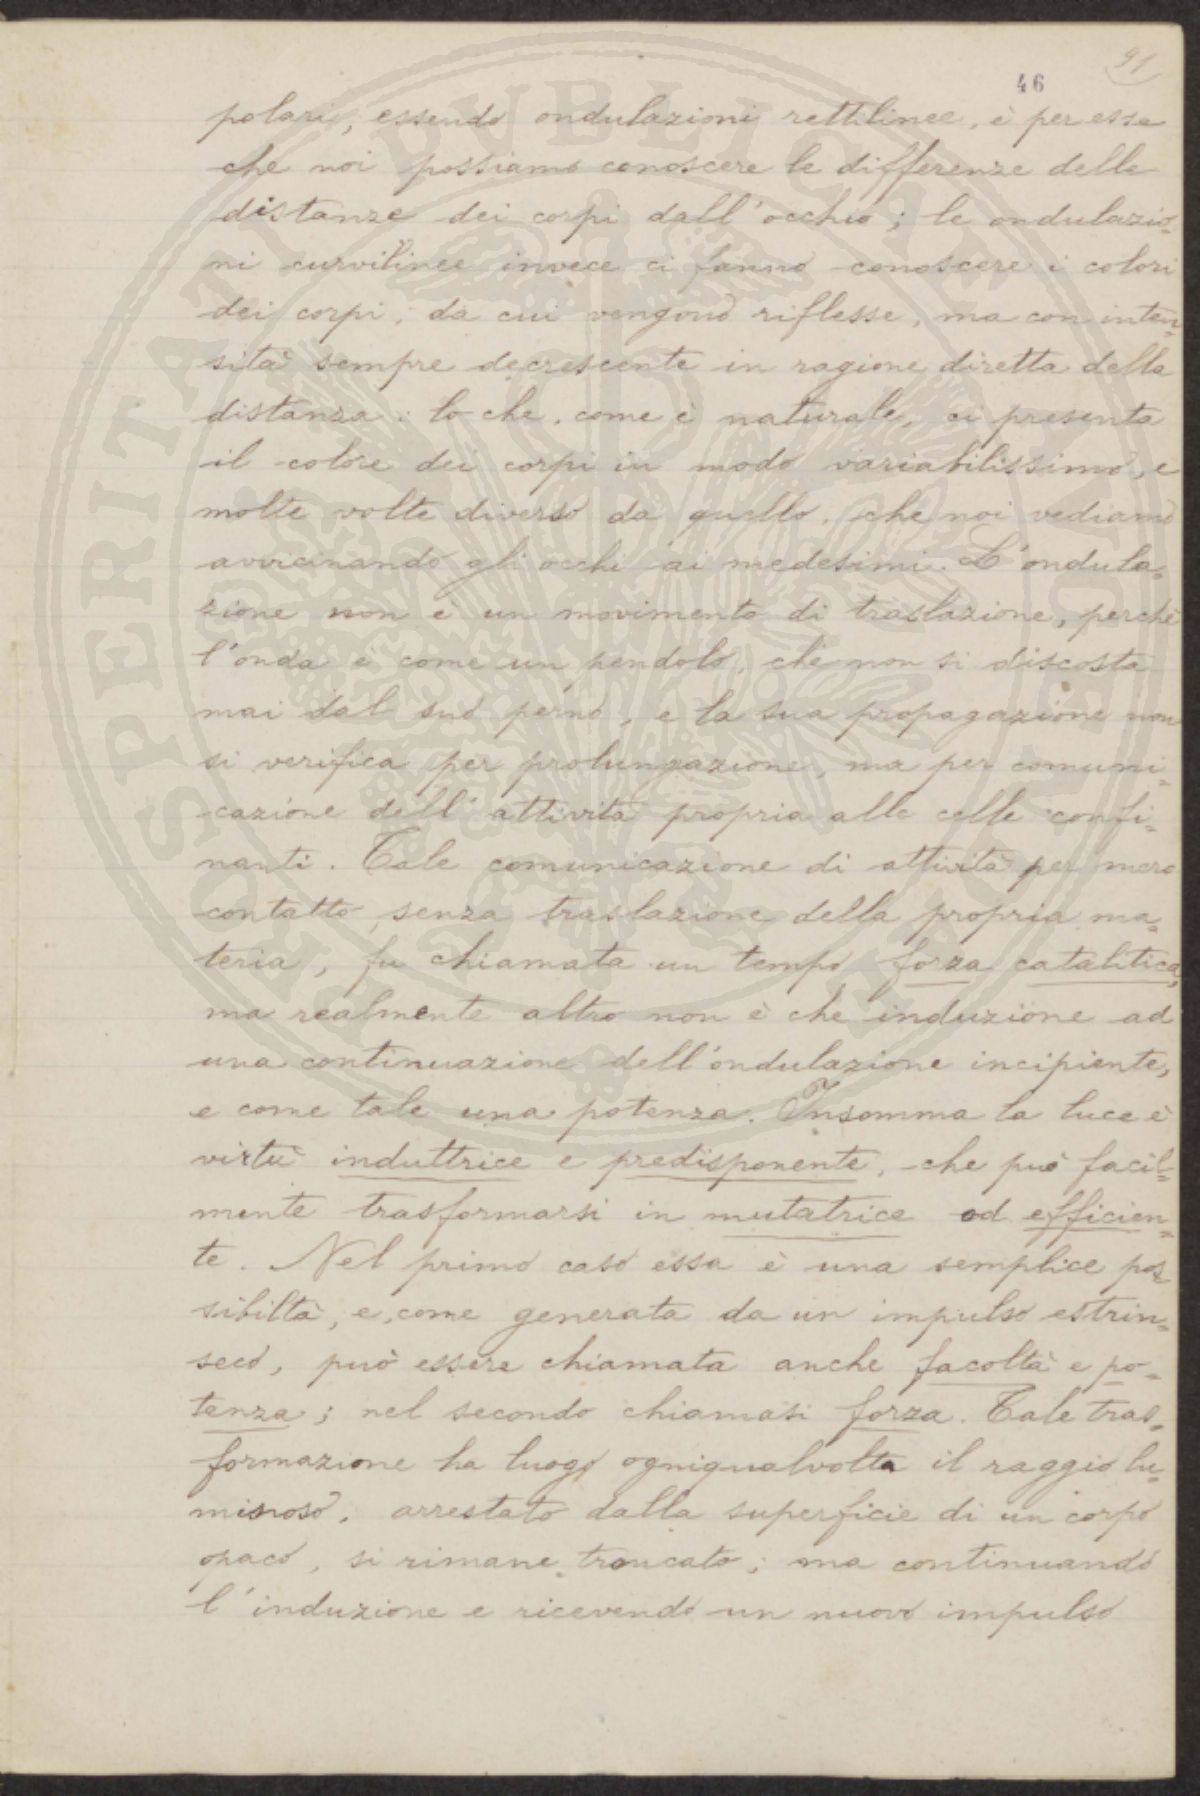 91
46
polari, essendo ondulazioni rettilinee, è per esse
che noi possiamo conoscere le differenze delle
distanze dei corpi dall'occhio; le ondulazio=
ni curvilinee invece ci fanno conoscere i colori
dei corpi, da cui vengono riflesse, ma con inten=
sità sempre decrescente in ragione diretta della
distanza: lo che, come è naturale, ci presenta
il colore dei corpi in modo variabilissimo, e
molte volte diverso da quello, che noi vediamo
avvicinando gli occhi ai medesimi. L'ondula=
zione non è un movimento di traslazione, perchè
l'onda e come un pendolo, che non si discosta
mai dal suo perno, e la sua propagazione non
si verifica per prolungazione, ma per comuni=
cazione dell'attività propria alle celle confi=
nanti. Tale comunicazione di attività per mero
contatto, senza traslazione della propria ma=
teria, fu chiamata un tempo forza catalitica,
ma realmente altro non è che induzione ad
una continuazione dell'ondulazione incipiente,
e come tale una potenza. Insomma la luce è
virtù induttrice e predisponente, che può facil=
mente trasformarsi in mutatrice od efficien=
te. Nel primo caso essa è una semplice pos=
sibiltà, e, come generata da un impulso estrin=
seco, può essere chiamata anche facoltà e po=
tenza; nel secondo chiamasi forza. Tale tras=
formazione ha luogo ogniqualvolta il raggio lu=
minoso, arrestato dalla superficie di un corpo
opaco, si rimane troncato; ma continuando
l'induzione e ricevendo un nuovo impulso
PROSPERITATI PUBLICAE AUGENDAE